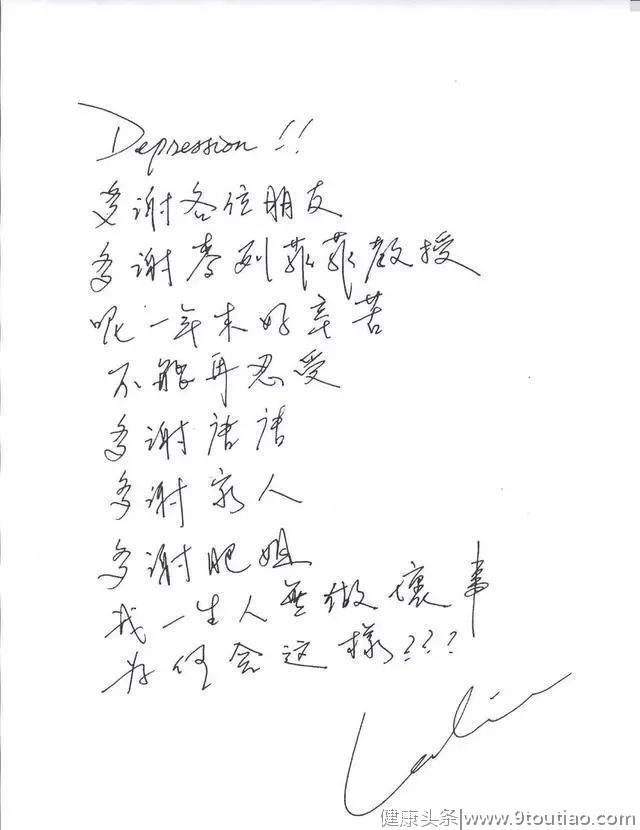 Depression!!
多谢各位朋友
多谢麦列菲菲教授
呢一年来好辛苦
不能再忍受
多谢唐唐
多谢家人
多谢肥姐
我一生人无做壞事
为何会这樣???
Leslie
健康头条|www.9toutiao.com